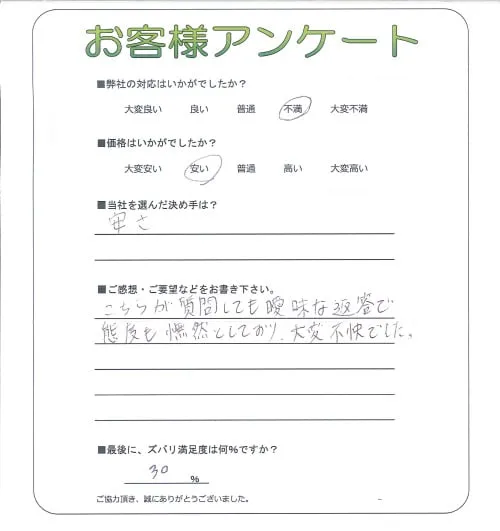 お客様アンケート
■弊社の対応はいかがでしたか？
大変良い 良い 普通 不満 大変不満
■価格はいかがでしたか？
大変安い 安い 普通 高い 大変高い
■当社を選んだ決め手は？
安さ
■ご感想・ご要望などをお書き下さい。
こちらが質問しても曖昧な返答で
態度も憮然としており、大変不快でした。
■最後に、ズバリ満足度は何％ですか？
30 ％
ご協力頂き、誠にありがとうございました。